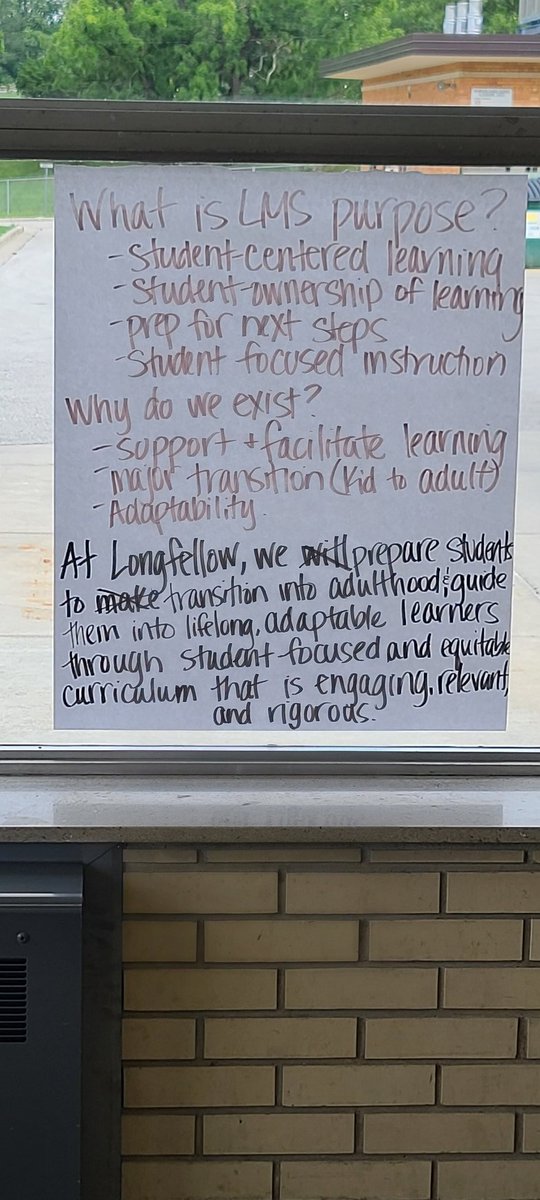 What is LMS purpose?
-Student-centered learning
-Student-ownership of learning
-prep for next steps
-Student focused instruction
Why do we exist?
-support + facilitate learning
-major transition (kid to adult)
-Adaptability.
At Longfellow, we will prepare students
to make transition into adulthood & guide
them into lifelong, adaptable learners
through student-focused and equitable
curriculum that is engaging, relevant,
and rigorous.